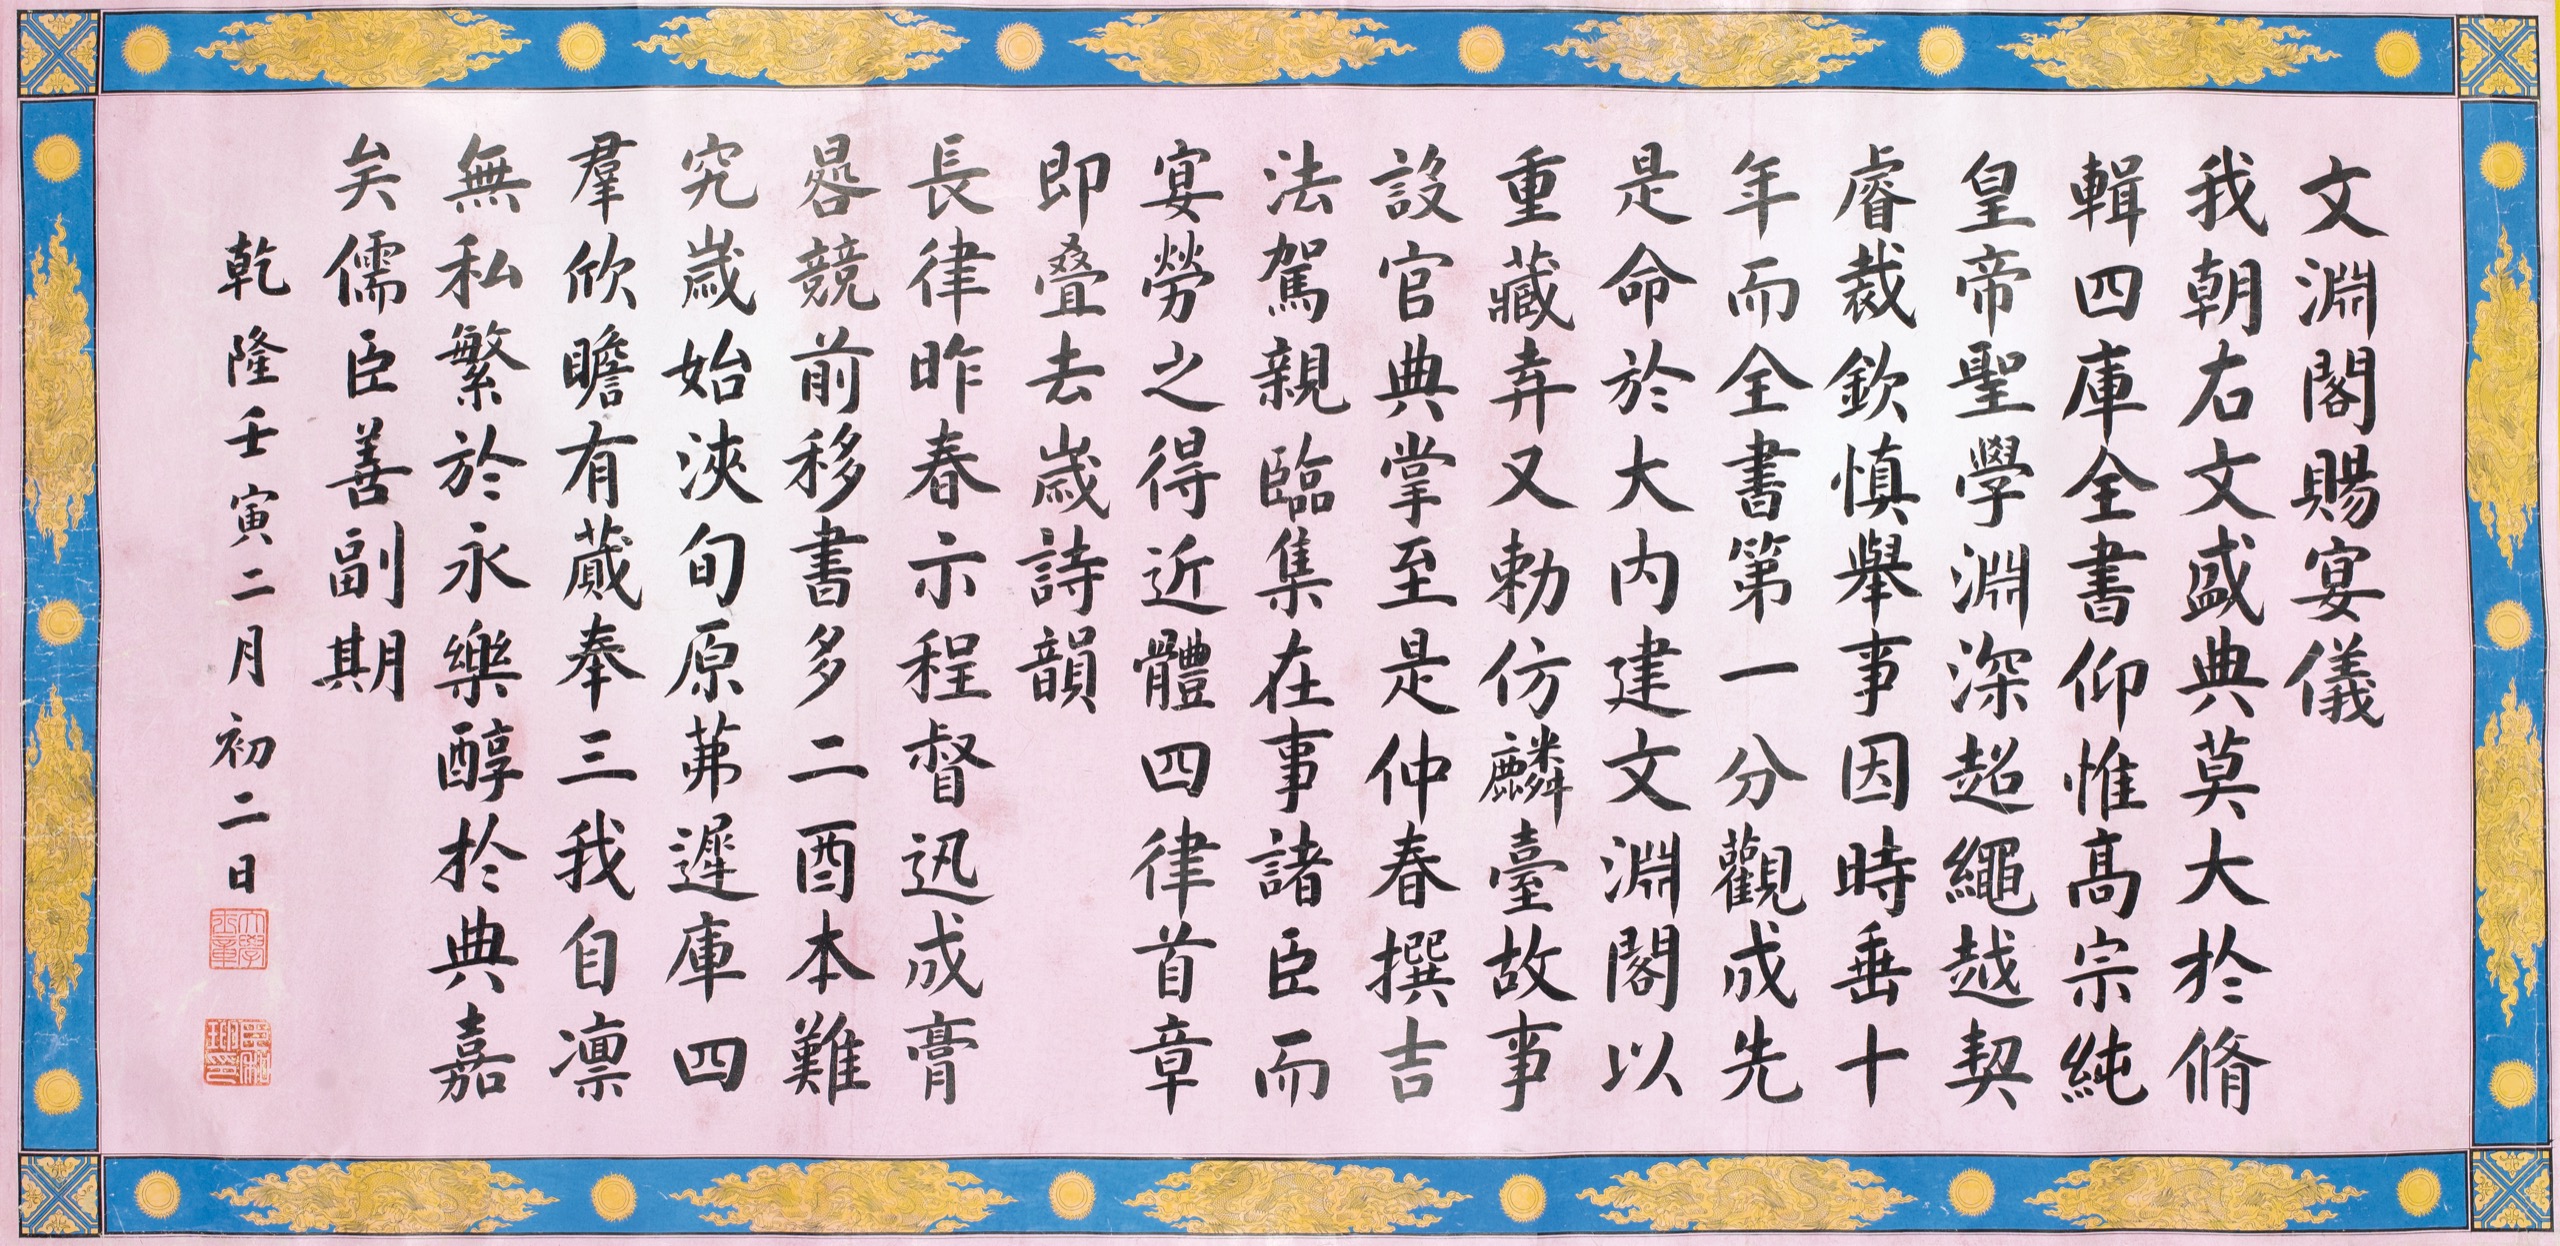 文淵閣賜宴儀
我朝右文盛典莫大於脩
輯四庫全書仰惟髙宗純
皇帝聖學淵深超繩越契
睿裁欽慎舉事因時垂十
年而全書第一分觀成先
是命於大内建文淵閣以
重藏弆又勅仿麟臺故事
設官典掌至是仲春撰吉
法駕親臨集在事諸臣而
宴勞之得近體四律首章
即叠去歲詩韻
長律昨春示程督迅成膏
晷競前移書多二酉本難
究歲始浹旬原茀遲庫四
羣欣瞻有蕆奉三我自凛
無私繁於永樂醇於典嘉
矣儒臣善副期
乾隆壬寅二月初二日